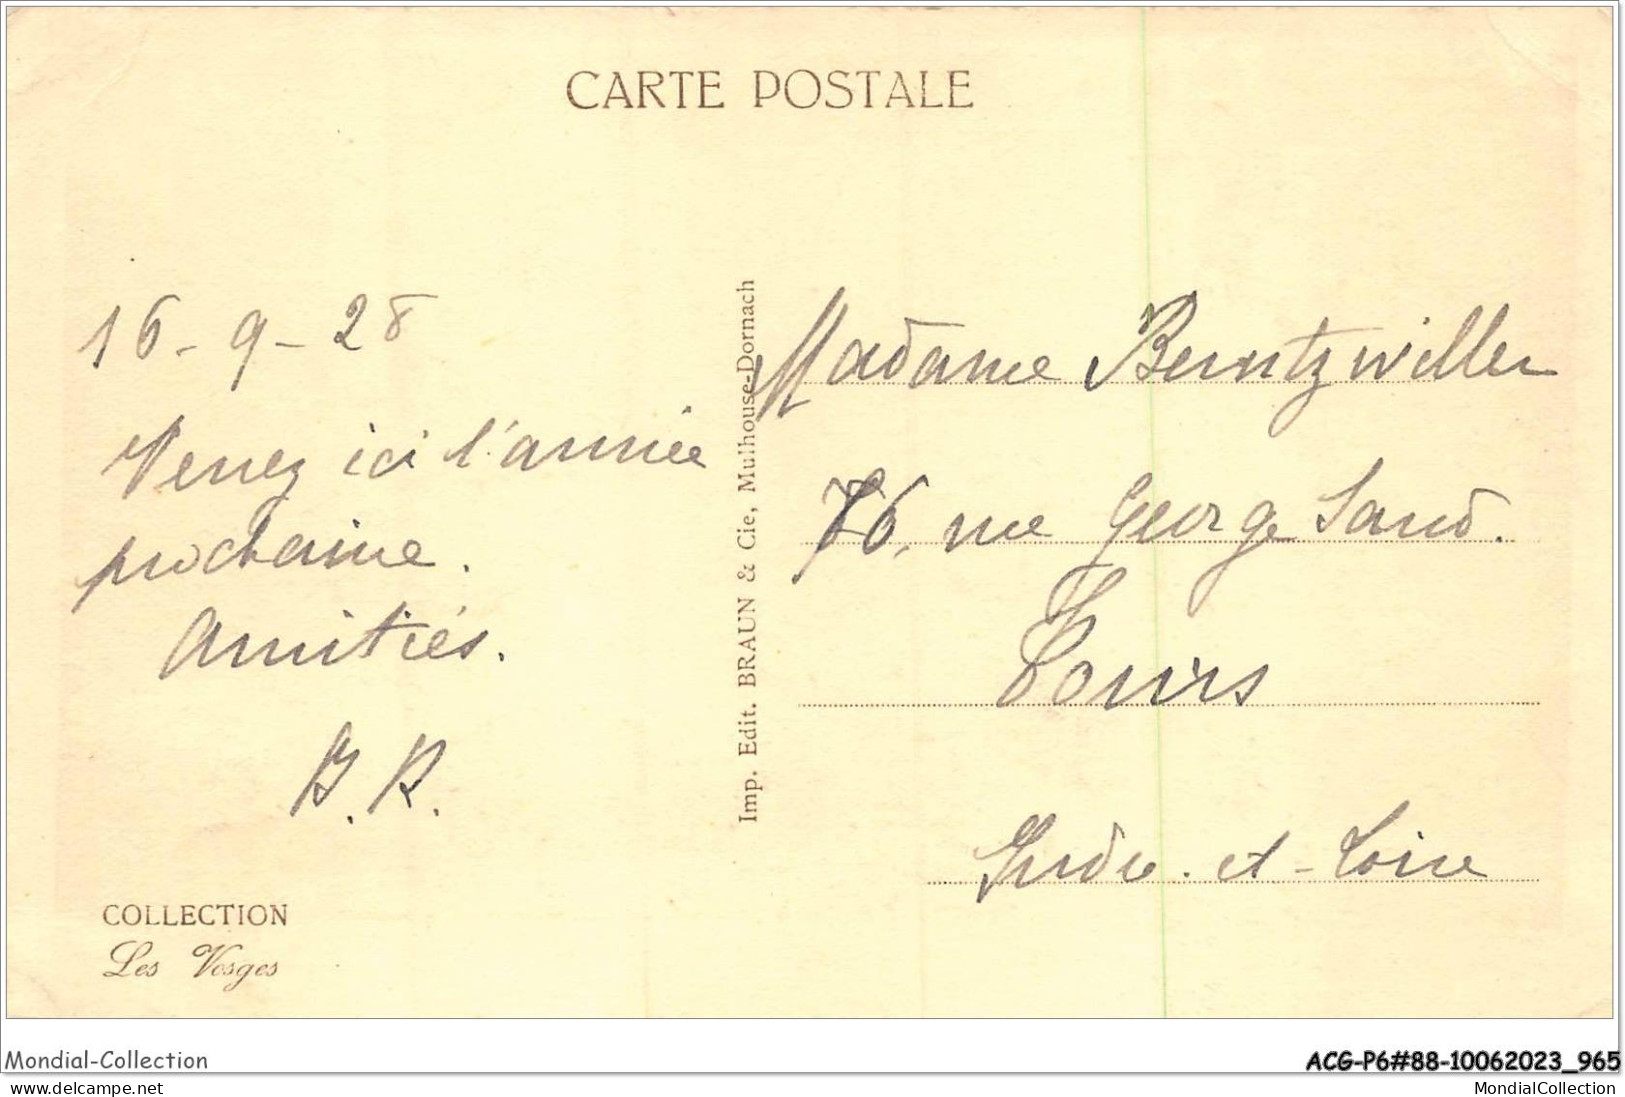 CARTE POSTALE
16-9-28
Venez ici l'année
prochaine.
Amitiés.
B.R.
COLLECTION
Les Vosges
Imp. Edit. BRAUN & Cie, Mulhouse-Dornach
Madame Berntzwiller
76, rue George Sand.
Tours
Indre-et-Loire
Mondial-Collection
ACG-P6#88-10062023_965
www.delcampe.net
MondialCollection